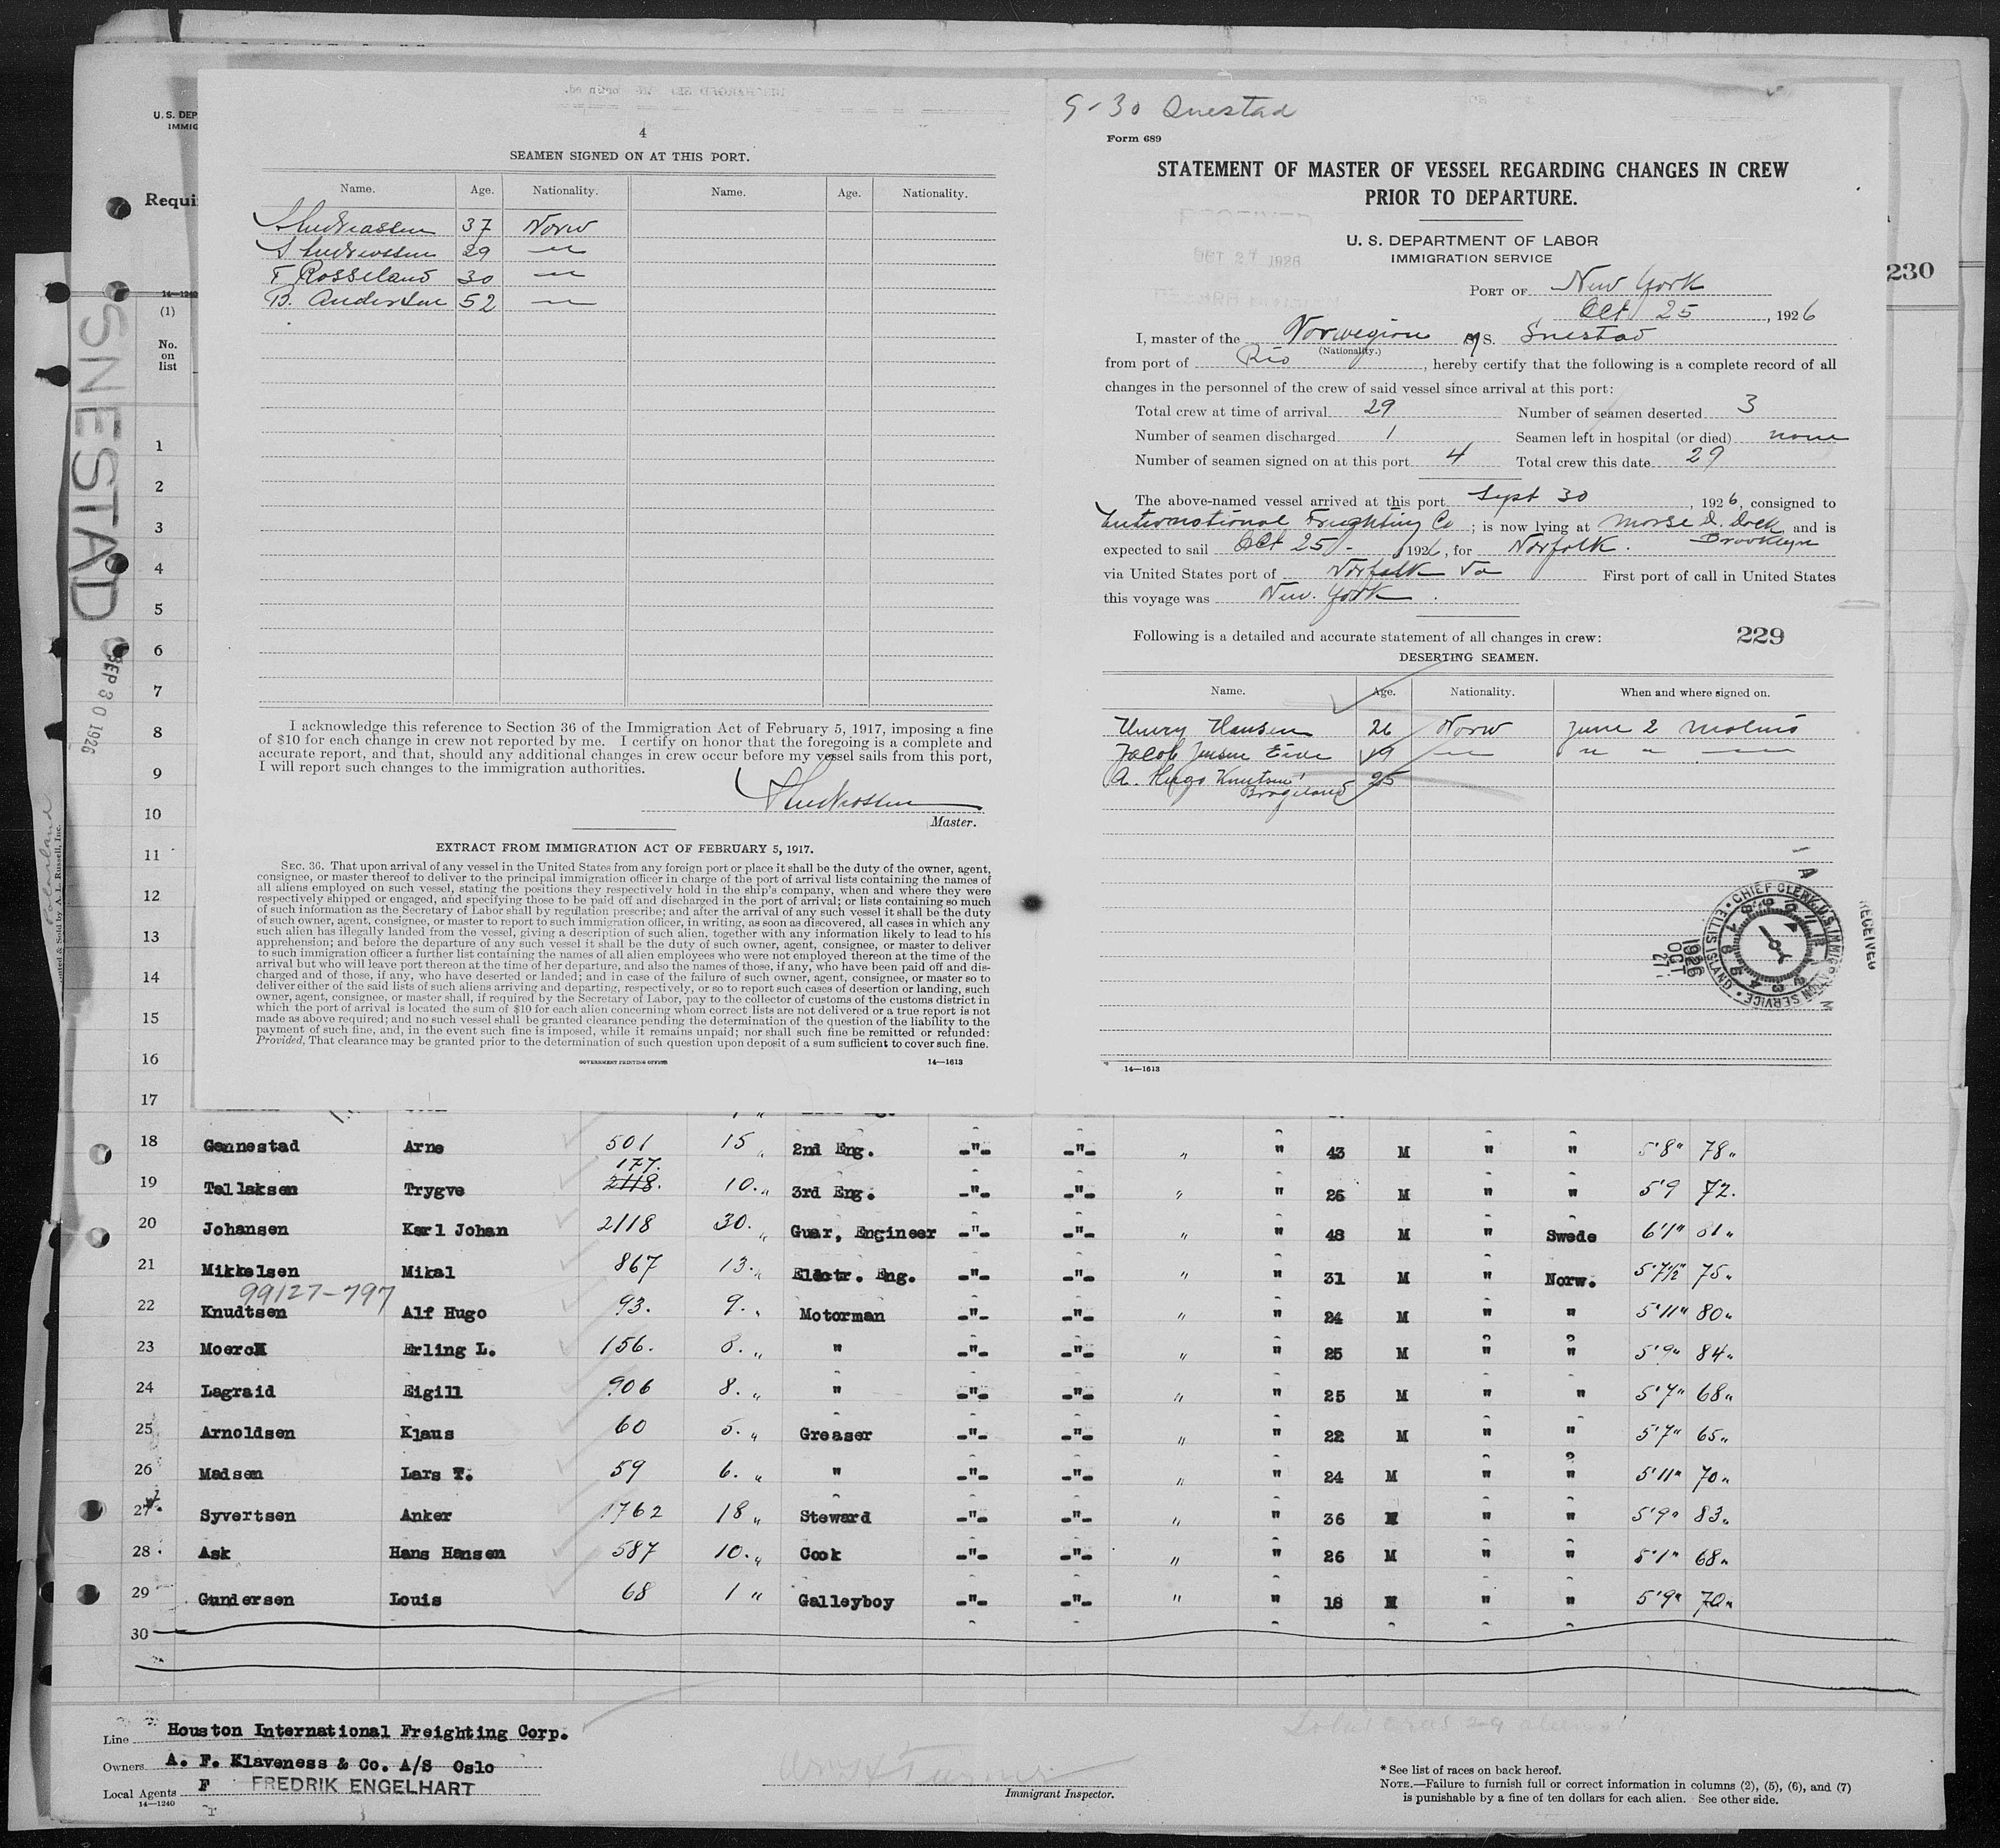 U. S. DEP
IMMIG
Requi
14—1240
(1)
No.
on
list
SNESTAD
SEP 30 1926
230
4
SEAMEN SIGNED ON AT THIS PORT.
Name. Age. Nationality. Name. Age. Nationality.
37 Norw
29 —"—
T Rosseland 30 —"—
B. Andersen 52 —"—
I acknowledge this reference to Section 36 of the Immigration Act of February 5, 1917, imposing a fine
of $10 for each change in crew not reported by me. I certify on honor that the foregoing is a complete and
accurate report, and that, should any additional changes in crew occur before my vessel sails from this port,
I will report such changes to the immigration authorities.
Master.
EXTRACT FROM IMMIGRATION ACT OF FEBRUARY 5, 1917.
SEC. 36. That upon arrival of any vessel in the United States from any foreign port or place it shall be the duty of the owner, agent,
consignee, or master thereof to deliver to the principal immigration officer in charge of the port of arrival lists containing the names of
all aliens employed on such vessel, stating the positions they respectively hold in the ship's company, when and where they were
respectively shipped or engaged, and specifying those to be paid off and discharged in the port of arrival; or lists containing so much
of such information as the Secretary of Labor shall by regulation prescribe; and after the arrival of any such vessel it shall be the duty
of such owner, agent, consignee, or master to report to such immigration officer, in writing, as soon as discovered, all cases in which any
such alien has illegally landed from the vessel, giving a description of such alien, together with any information likely to lead to his
apprehension; and before the departure of any such vessel it shall be the duty of such owner, agent, consignee, or master to deliver
to such immigration officer a further list containing the names of all alien employees who were not employed thereon at the time of the
arrival but who will leave port thereon at the time of her departure, and also the names of those, if any, who have been paid off and dis-
charged and of those, if any, who have deserted or landed; and in case of the failure of such owner, agent, consignee, or master so to
deliver either of the said lists of such aliens arriving and departing, respectively, or so to report such cases of desertion or landing, such
owner, agent, consignee, or master shall, if required by the Secretary of Labor, pay to the collector of customs of the customs district in
which the port of arrival is located the sum of $10 for each alien concerning whom correct lists are not delivered or a true report is not
made as above required; and no such vessel shall be granted clearance pending the determination of the question of the liability to the
payment of such fine, and, in the event such fine is imposed, while it remains unpaid; nor shall such fine be remitted or refunded:
Provided, That clearance may be granted prior to the determination of such question upon deposit of a sum sufficient to cover such fine.
GOVERNMENT PRINTING OFFICE 14—1613
9-30 Snestad
Form 689
STATEMENT OF MASTER OF VESSEL REGARDING CHANGES IN CREW
PRIOR TO DEPARTURE.
U. S. DEPARTMENT OF LABOR
IMMIGRATION SERVICE
OCT 27 1926
PORT OF New York
Oct 25, 1926
I, master of the Norwegian M/S. Snestad
(Nationality.)
from port of Rio, hereby certify that the following is a complete record of all
changes in the personnel of the crew of said vessel since arrival at this port:
Total crew at time of arrival 29 Number of seamen deserted 3
Number of seamen discharged 1 Seamen left in hospital (or died) none
Number of seamen signed on at this port 4 Total crew this date 29
The above-named vessel arrived at this port Sept 30, 1926, consigned to
International Freighting Co; is now lying at Morse D. Dock and is
Brooklyn
expected to sail Oct 25 - 1926, for Norfolk.
via United States port of Norfolk Va First port of call in United States
this voyage was New York.
Following is a detailed and accurate statement of all changes in crew: 229
DESERTING SEAMEN.
Name. Age. Nationality. When and where signed on.
Henry Hansen 26 Norw June 2 Malmö
Jacob Jensen Eide 49 —"— " " —"—
A. Hugo Knutsen 25
CHIEF CLERK U.S. IMMIGRATION SERVICE • ELLIS ISLAND
1926 OCT 27
RECEIVED
14—1613
1
2
3
4
5
6
7
8
9
10
11
12
13
14
15
16
17
18 Gennestad Arne 501 15 " 2nd Eng. -"- -"- " " 43 M " " 5'8" 78"
19 Tallaksen Trygve 177. 2118. 10. " 3rd Eng. -"- -"- " " 26 M " " 5'9 72.
20 Johansen Karl Johan 2118 30. " Guar, Engineer -"- -"- " " 48 M " Swede 6'1" 81"
21 Mikkelsen Mikal 867 13. " Electr. Eng. -"- -"- " " 31 M " Norw. 5'7½" 75"
99127-797
22 Knudtsen Alf Hugo 93. 9. " Motorman -"- -"- " " 24 M " " 5'11" 80"
23 Moerck Erling L. 156. 8. " " -"- -"- " " 25 M " " 5'9" 84"
24 Lagraid Eigill 906 8. " " -"- -"- " " 25 M " " 5'7" 68"
25 Arnoldsen Klaus 60 5. " Greaser -"- -"- " " 22 M " " 5'7" 65"
26 Madsen Lars T. 59 6. " " -"- -"- " " 24 M " " 5'11" 70"
27 Syvertsen Anker 1762 18 " Steward -"- -"- " " 36 M " " 5'9" 83"
28 Ask Hans Hansen 587 10. " Cook -"- -"- " " 26 M " " 5'1" 68"
29 Gundersen Louis 68 1 " Galleyboy -"- -"- " " 18 M " " 5'9" 70"
30
Line Houston International Freighting Corp.
Owners A. F. Klaveness & Co. A/S Oslo
Local Agents F FREDRIK ENGELHART
14—1240
Immigrant Inspector.
* See list of races on back hereof.
NOTE.—Failure to furnish full or correct information in columns (2), (5), (6), and (7)
is punishable by a fine of ten dollars for each alien. See other side.